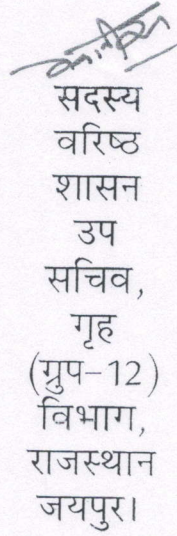 सदस्य
वरिष्ठ
शासन
उप
सचिव,
गृह
(ग्रुप-12)
विभाग,
राजस्थान
जयपुर।